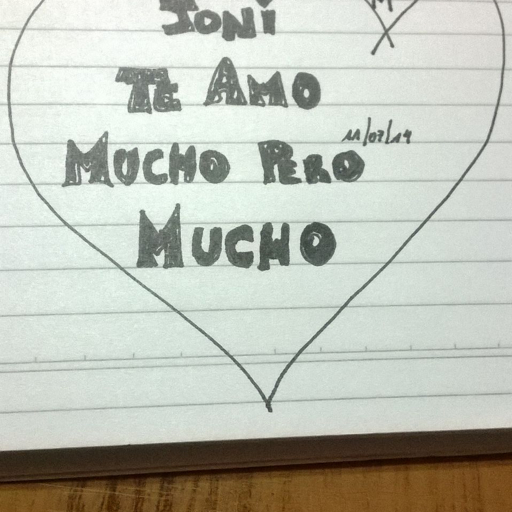 JONI
TE AMO
MUCHO PERO
11/07/14
MUCHO